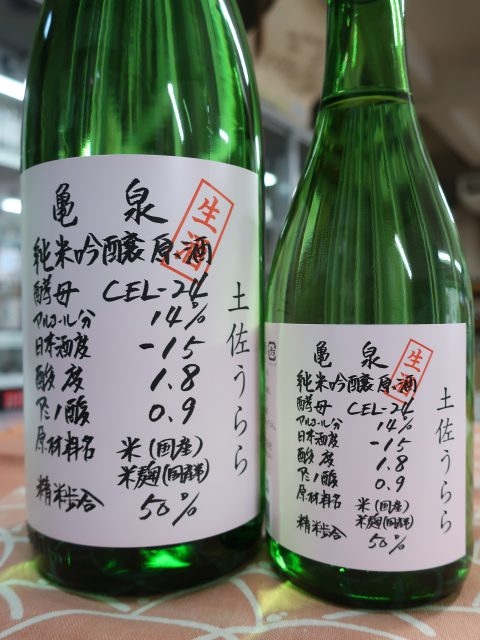 亀泉
生酒
純米吟醸原酒
酵母 CEL-24
アルコール分 14%
日本酒度 -15
酸度 1.8
アミノ酸 0.9
原材料名 米(国産)
米麹(国産米)
精米歩合 50%
土佐うらら
亀泉
生酒
純米吟醸原酒
酵母 CEL-24
アルコール分 14%
日本酒度 -15
酸度 1.8
アミノ酸 0.9
原材料名 米(国産)
米麹(国産米)
精米歩合 50%
土佐うらら